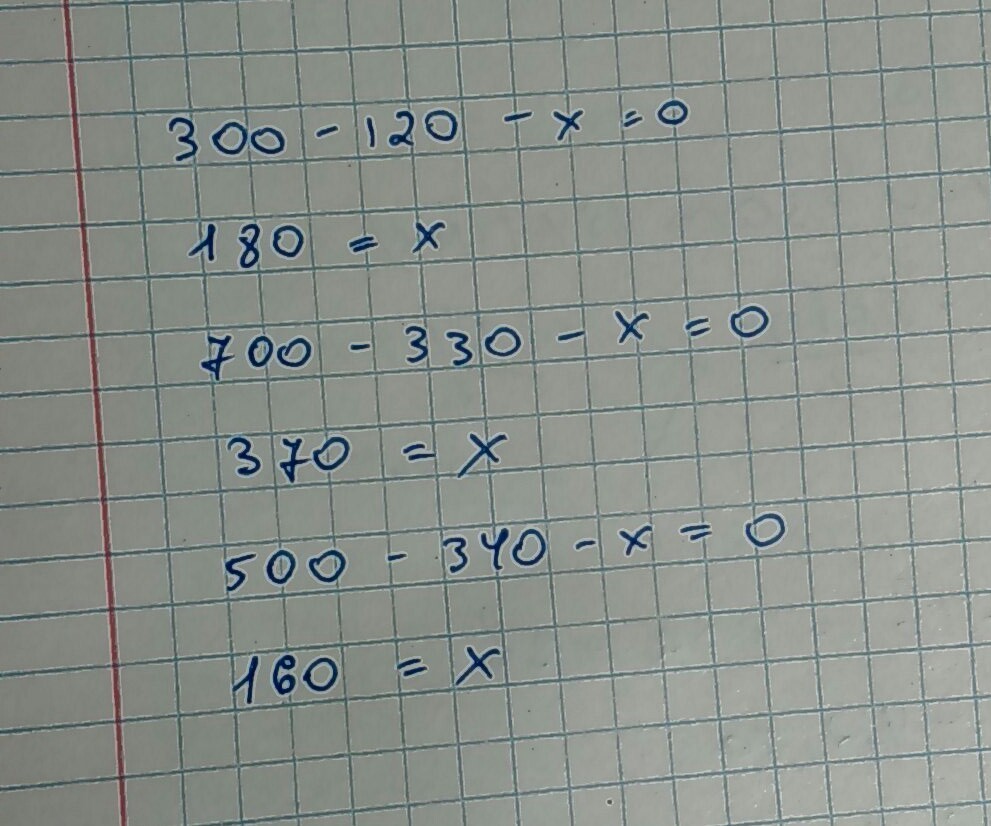 300 - 120 - x = 0
180 = x
700 - 330 - x = 0
370 = x
500 - 340 - x = 0
160 = x